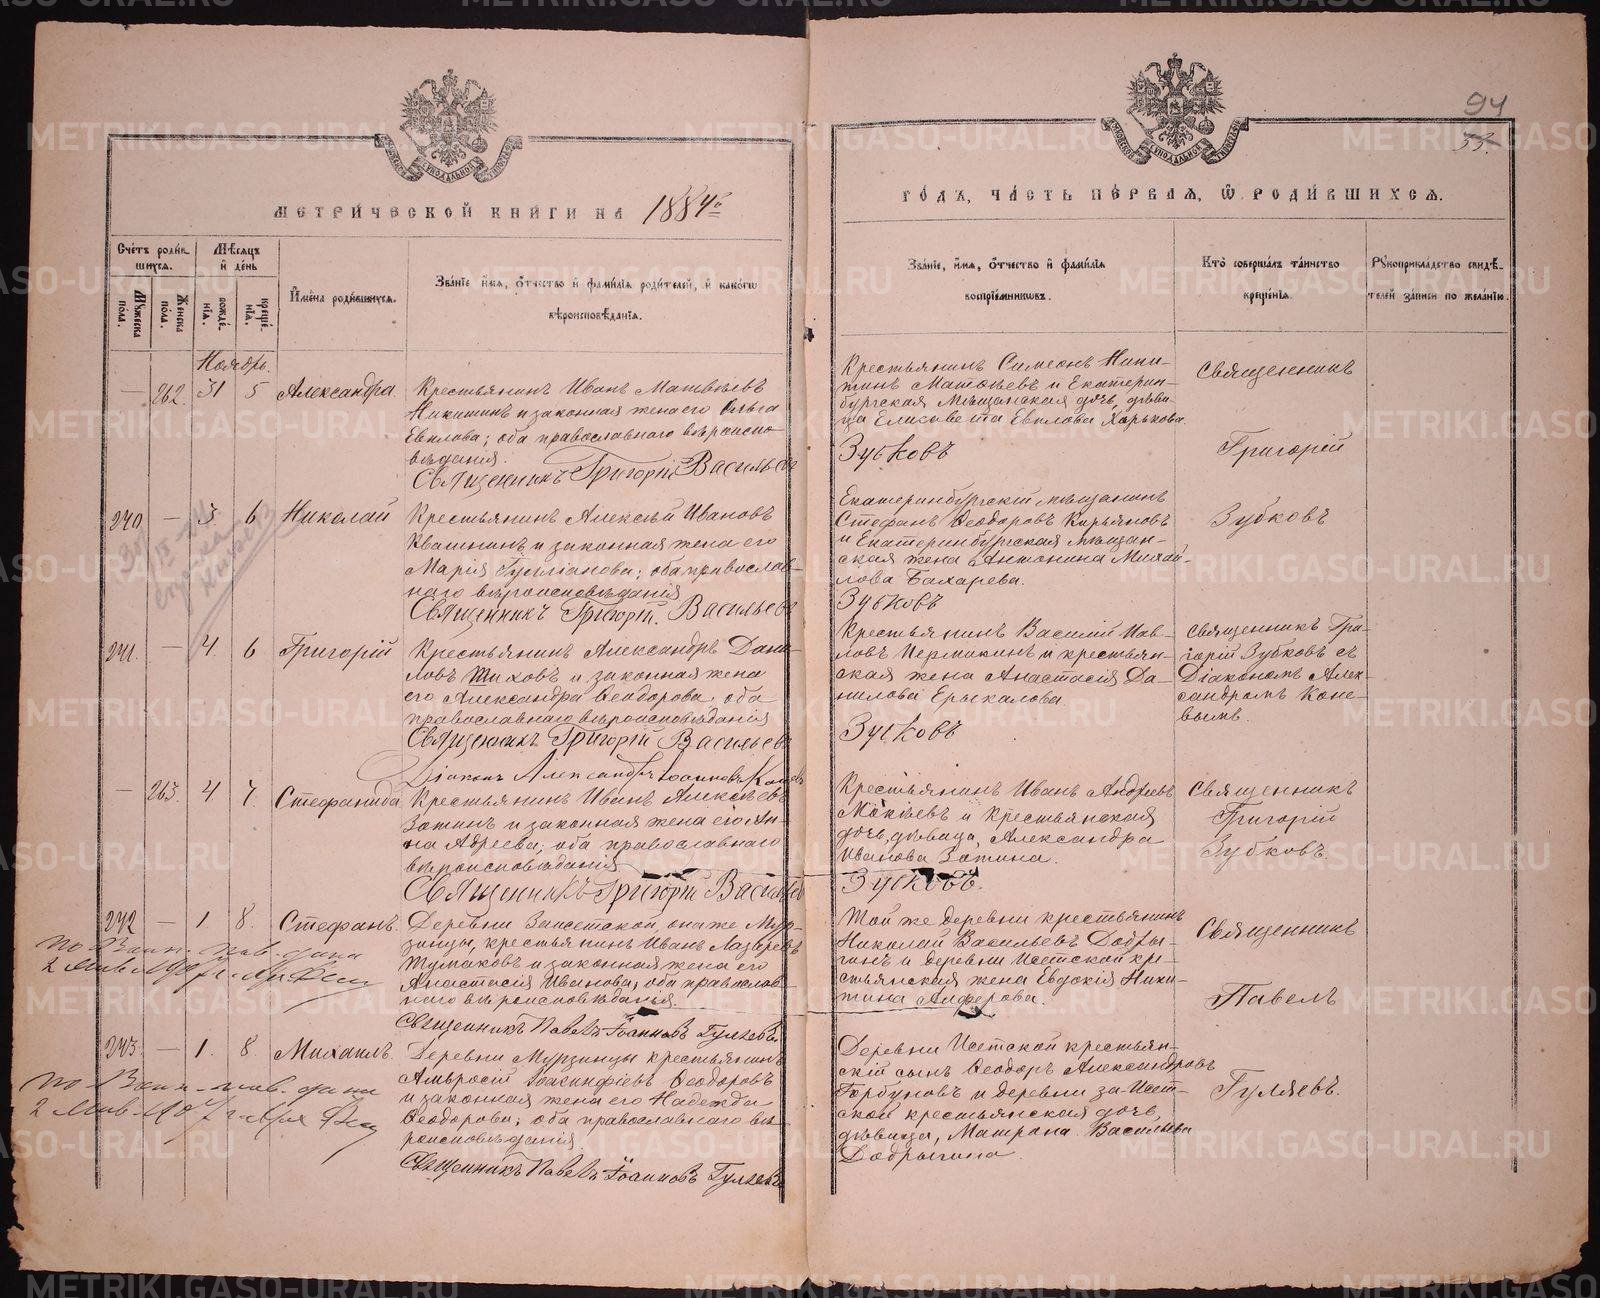 94
33.
МЕТРИЧЕСКОЙ КНИГИ НА 1884й
ГОДЪ, ЧАСТЬ ПЕРВАЯ, Ѿ РОДИВШИХСЯ.
Счетъ родившихся.
Мужеска пола.
Женска пола.
Мѣсяцъ и день
рожденія.
крещенія.
Имена родившихся.
Званіе имя, отчество и фамилія родителей, и какогѡ
вѣроисповѣданія.
Званіе, имя, отчество и фамилія
воспріемниковъ.
Кто совершалъ таинство
крещенія.
Рукоприкладство свидѣ-
телей записи по желанію.
Ноябрь.
— 262. 31 5 Александра.
Крестьянинъ Иванъ Матвѣевъ
Никитинъ и законная жена его Ольга
Евилова; оба православнаго вѣроиспо-
вѣданія.
Священникъ Григорій Васильевъ
Крестьянинъ Симеонъ Ники-
тинъ Матвѣевъ и Екатерин-
бургская мѣщанская дочь, дѣви-
ца Елисавета Евилова Харькова.
Зубковъ
Священникъ
Григорій
240 — 3 6 Николай
Крестьянинъ Алексѣй Ивановъ
Квашнинъ и законная жена его
Марія Іуліанова; оба православ-
наго вѣроисповѣданія
Священникъ Григорій Васильевъ
Екатеринбургскій мѣщанинъ
Стефанъ Ѳеодоровъ Кирьяновъ
и Екатеринбургская мѣщан-
ская жена Антонина Михай-
лова Бахарева.
Зубковъ
Зубковъ
241. — 4 6 Григорій
Крестьянинъ Александръ Дани-
ловъ Тиховъ и законная жена
его Александра Ѳеодорова, оба
православнаго вѣроисповѣданія
Священникъ Григорій Васильевъ
Діаконъ Александръ Іоанновъ
Крестьянинъ Василій Пав-
ловъ Пермикинъ и крестьян-
ская жена Анастасія Да-
нилова Ерыкалова.
Зубковъ
Священникъ Гри-
горій Зубковъ съ
Діакономъ Алек-
сандромъ Коне-
вымъ.
— 263. 4 7. Стефанида
Крестьянинъ Иванъ Алексѣевъ
Зотинъ и законная жена его Ан-
на Адреева; оба православнаго
вѣроисповѣданія
Священникъ Григорій Васильевъ
Крестьянинъ Иванъ Андреевъ
Мокѣевъ и крестьянская
дочь, дѣвица, Александра
Иванова Зотина.
Зубковъ.
Священникъ
Григорій
Зубковъ.
242 — 1 8. Стефанъ.
Деревни Заисетской, она же Мур-
зинцы, крестьянинъ Иванъ Лазаревъ
Тумаковъ и законная жена его
Анастасія Иванова; оба православ-
наго вѣроисповѣданья.
Священникъ Павелъ Іоанновъ Гуляевъ.
Той же деревни крестьянинъ
Николай Васильевъ Добры-
гинъ и деревни Исетской кре-
стьянская жена Евдокія Ники-
тина Алферова.
Священникъ
Павелъ
243. — 1. 8. Михаилъ.
Деревни Мурзинцы крестьянинъ
Амвросій Іоакинфіевъ Ѳеодоровъ
и законная жена его Надежда
Ѳеодорова; оба православнаго вѣ-
роисповѣданія
Священникъ Павелъ Іоанновъ Гуляевъ
Деревни Исетской крестьян-
скій сынъ Ѳеодоръ Александровъ
Горбуновъ и деревни за-Исет-
ской крестьянская дочь,
дѣвица, Матрона Васильева
Добрыгина
Гуляевъ.